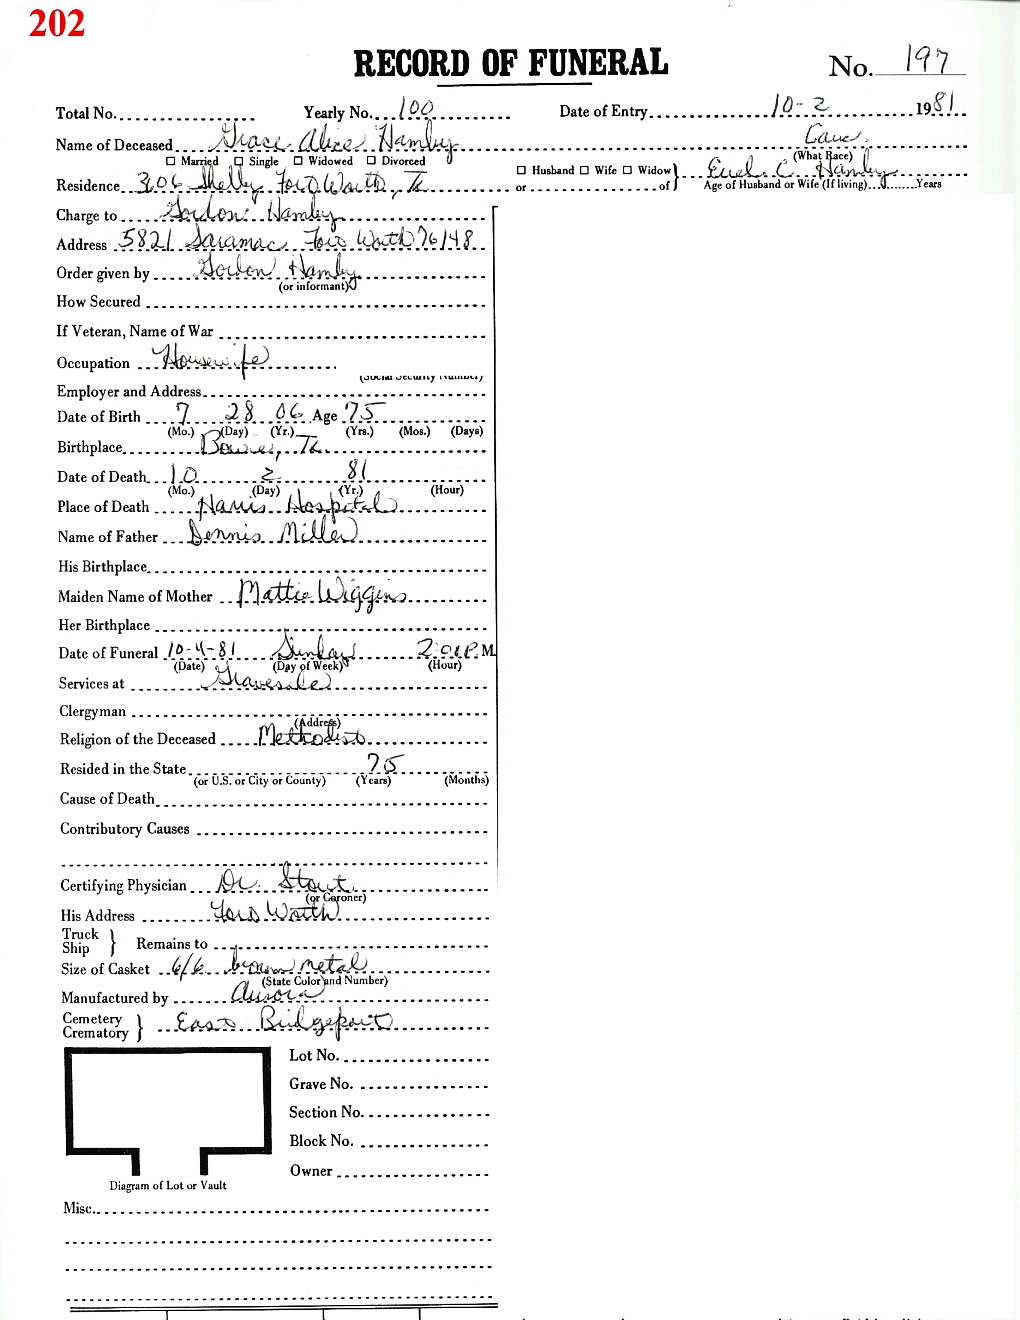 202
RECORD OF FUNERAL No. 197
Total No. Yearly No. 100 Date of Entry 10-2 1981
Name of Deceased Grace Alice Hamby Cauc.
(What Race)
☐ Married ☐ Single ☐ Widowed ☐ Divorced
☐ Husband ☐ Wife ☐ Widow or of } Euel C. Hamby
Residence 306 Shelby, Fort Worth, Tx Age of Husband or Wife (If living) Years
Charge to Gordon Hamby
Address 5821 Saramac Fort Worth 76148
Order given by Gordon Hamby
(or informant)
How Secured
If Veteran, Name of War
Occupation Housewife
(Social Security Number)
Employer and Address
Date of Birth 7 28 06 Age 75
(Mo.) (Day) (Yr.) (Yrs.) (Mos.) (Days)
Birthplace Bowie, Tx
Date of Death 10 2 81
(Mo.) (Day) (Yr.) (Hour)
Place of Death Harris Hospital
Name of Father Dennis Miller
His Birthplace
Maiden Name of Mother Mattie Wiggins
Her Birthplace
Date of Funeral 10-4-81 Sunday 2:00 P.M.
(Date) (Day of Week) (Hour)
Services at Graveside
Clergyman
(Address)
Religion of the Deceased Methodist
Resided in the State 75
(or U.S. or City or County) (Years) (Months)
Cause of Death
Contributory Causes
Certifying Physician Dr. Stout
(or Coroner)
His Address Fort Worth
Truck
Ship } Remains to
Size of Casket 6/6 brown metal
(State Color and Number)
Manufactured by Aurora
Cemetery
Crematory } East Bridgeport
Lot No.
Grave No.
Section No.
Block No.
Owner
Diagram of Lot or Vault
Misc.